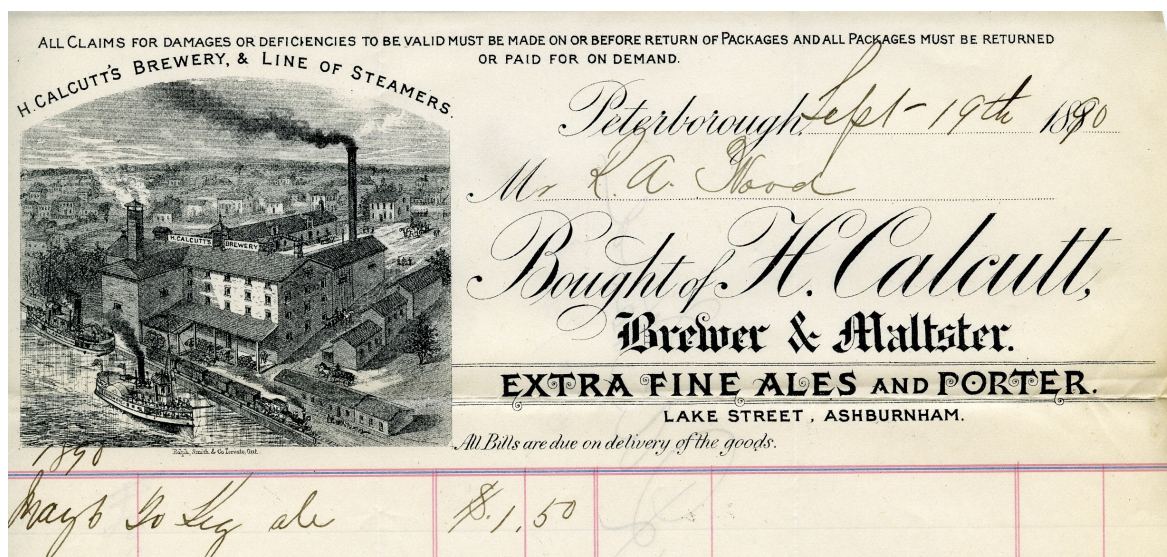 ALL CLAIMS FOR DAMAGES OR DEFICIENCIES TO BE VALID MUST BE MADE ON OR BEFORE RETURN OF PACKAGES AND ALL PACKAGES MUST BE RETURNED
OR PAID FOR ON DEMAND.
H. CALCUTT'S BREWERY, & LINE OF STEAMERS.
H. CALCUTT'S BREWERY
Peterborough, Sept 19th 1890
Mr R. A. Wood
Bought of H. Calcutt,
Brewer & Maltster.
EXTRA FINE ALES AND PORTER.
LAKE STREET, ASHBURNHAM.
All Bills are due on delivery of the goods.
Rolph, Smith & Co Toronto, Ont.
1890
May 6 To Keg ale $1.50